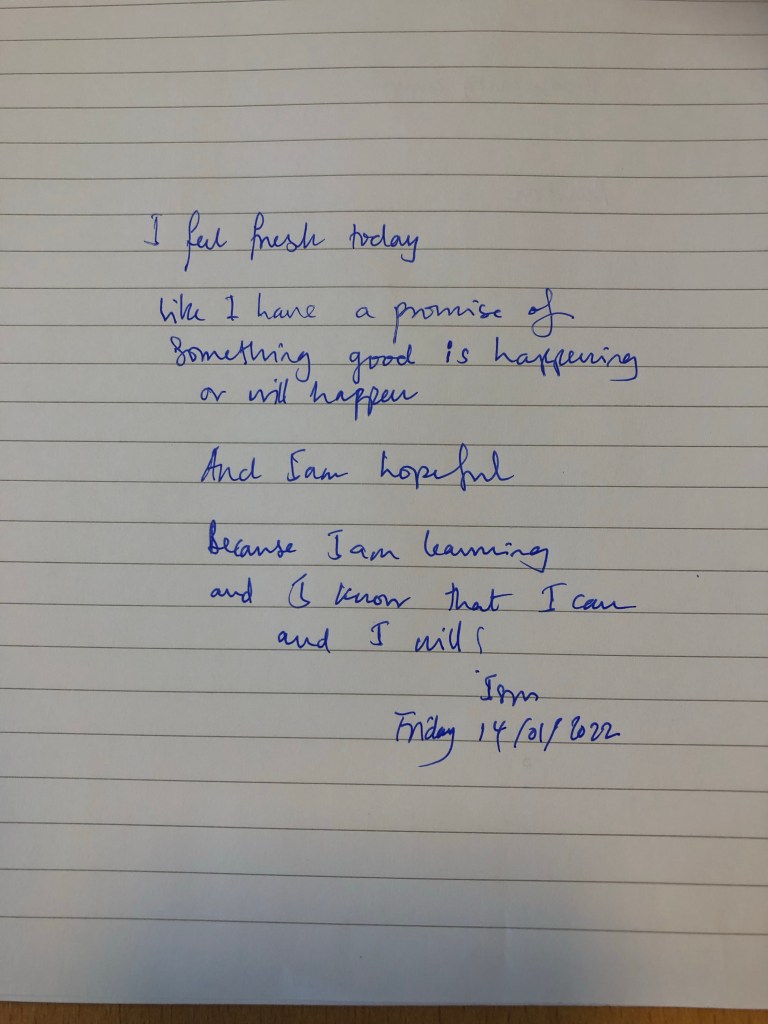 I feel fresh today
Like I have a promise of
Something good is happening
or will happen
And I am hopeful
Because I am learning
and I know that I can
and I will!
Friday 14/01/2022